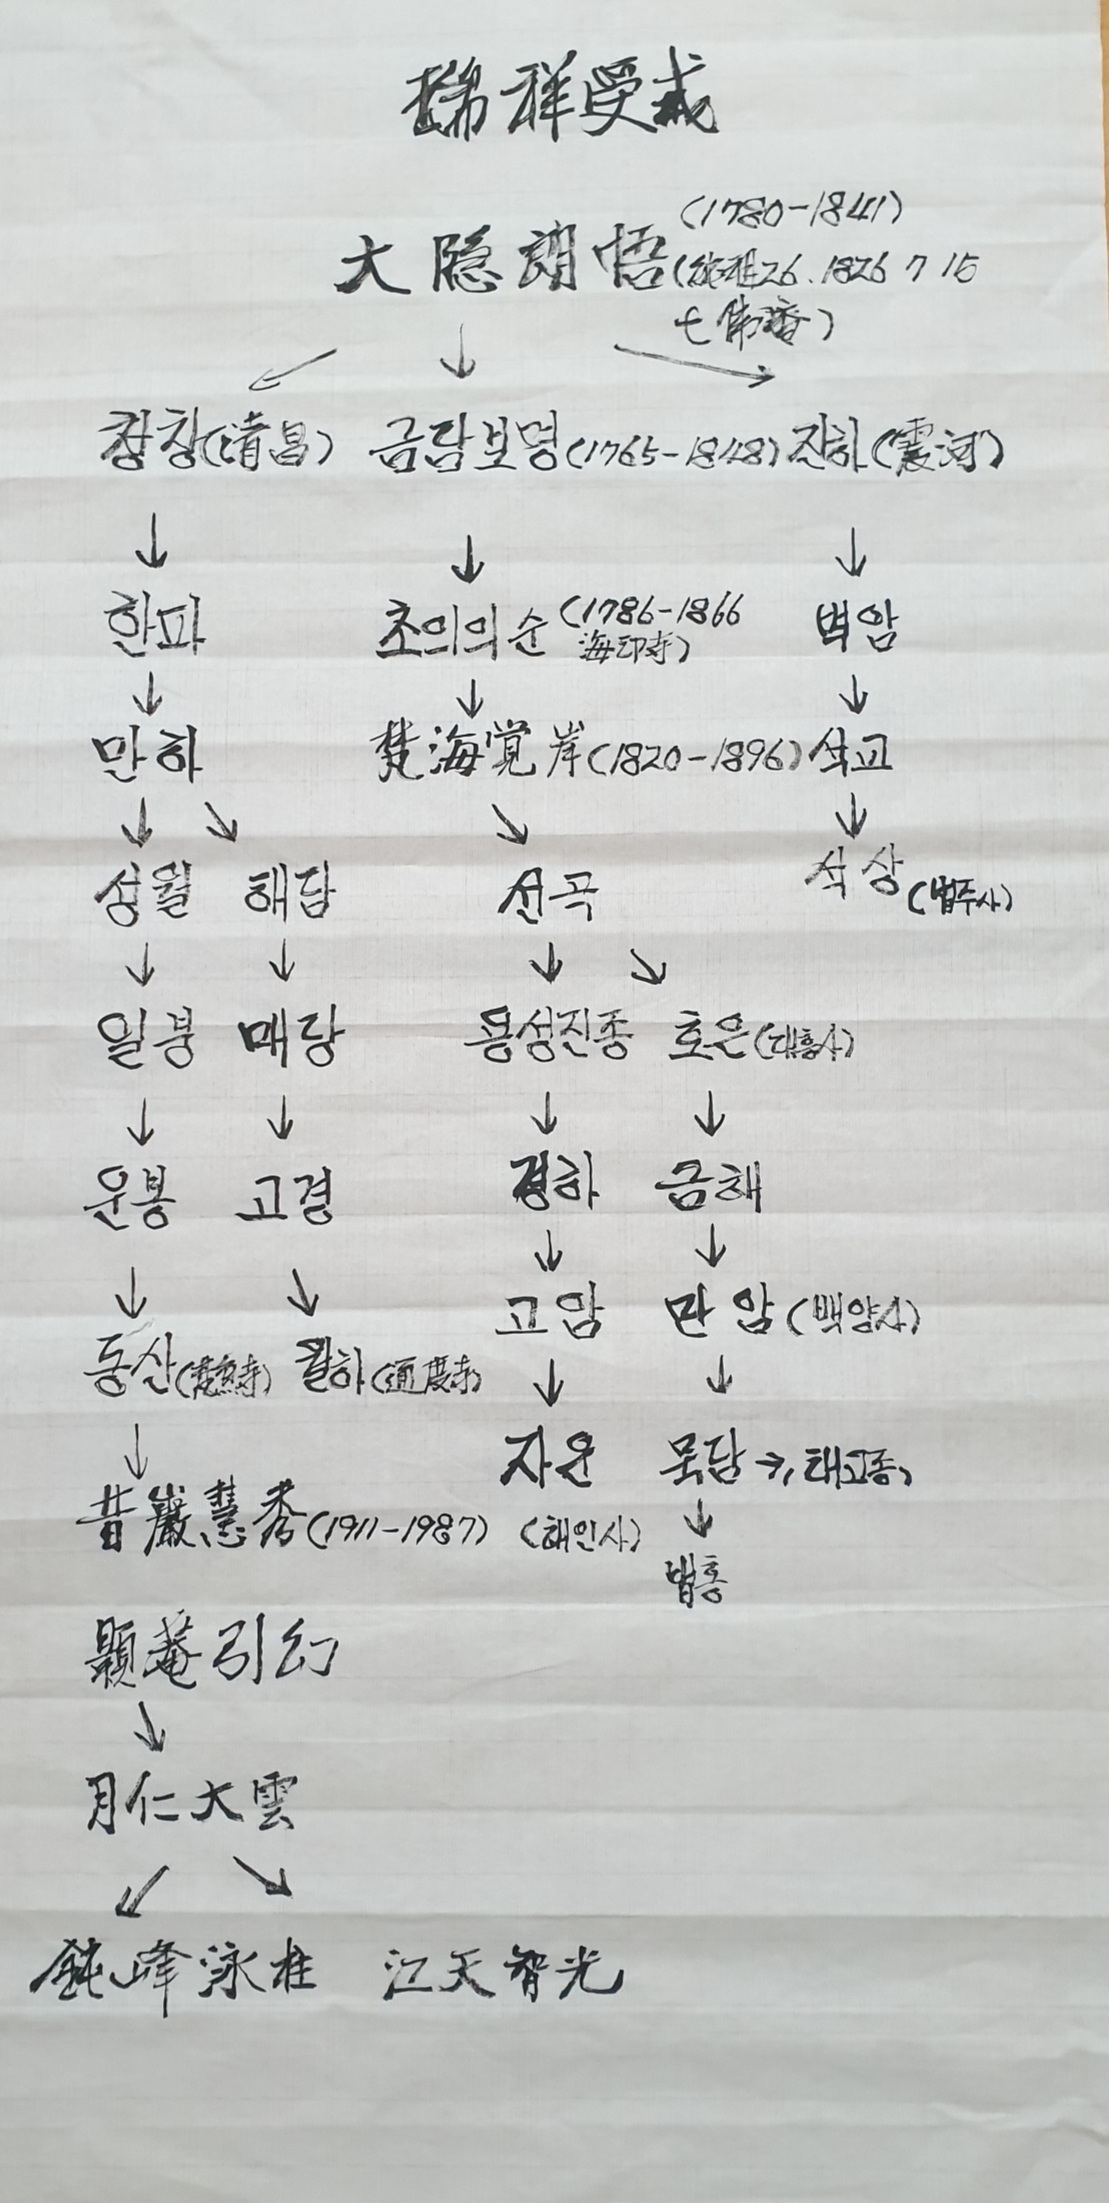 瑞祥受戒
(1780-1841)
大隐朗悟(純祖26. 1826 7 15
七佛庵)
창창(清昌) 금담보명(1765-1848) 진하(震河)
한파 초의의순(1786-1866 벽암
海印寺)
만하 梵海覚岸(1820-1896) 석교
성월 해담 선곡 석상(법주사)
일봉 매당 용성진종 호은(대흥사)
운봉 고결 경하 금해
고암 만암(백양사)
동산(梵魚寺) 월하(通度寺)
자운 묵담→(태고종)
昔巖慧秀(1911-1987) (해인사)
법홍
顯菴引幻
月仁大雲
鈍峰泳柱 江天智光